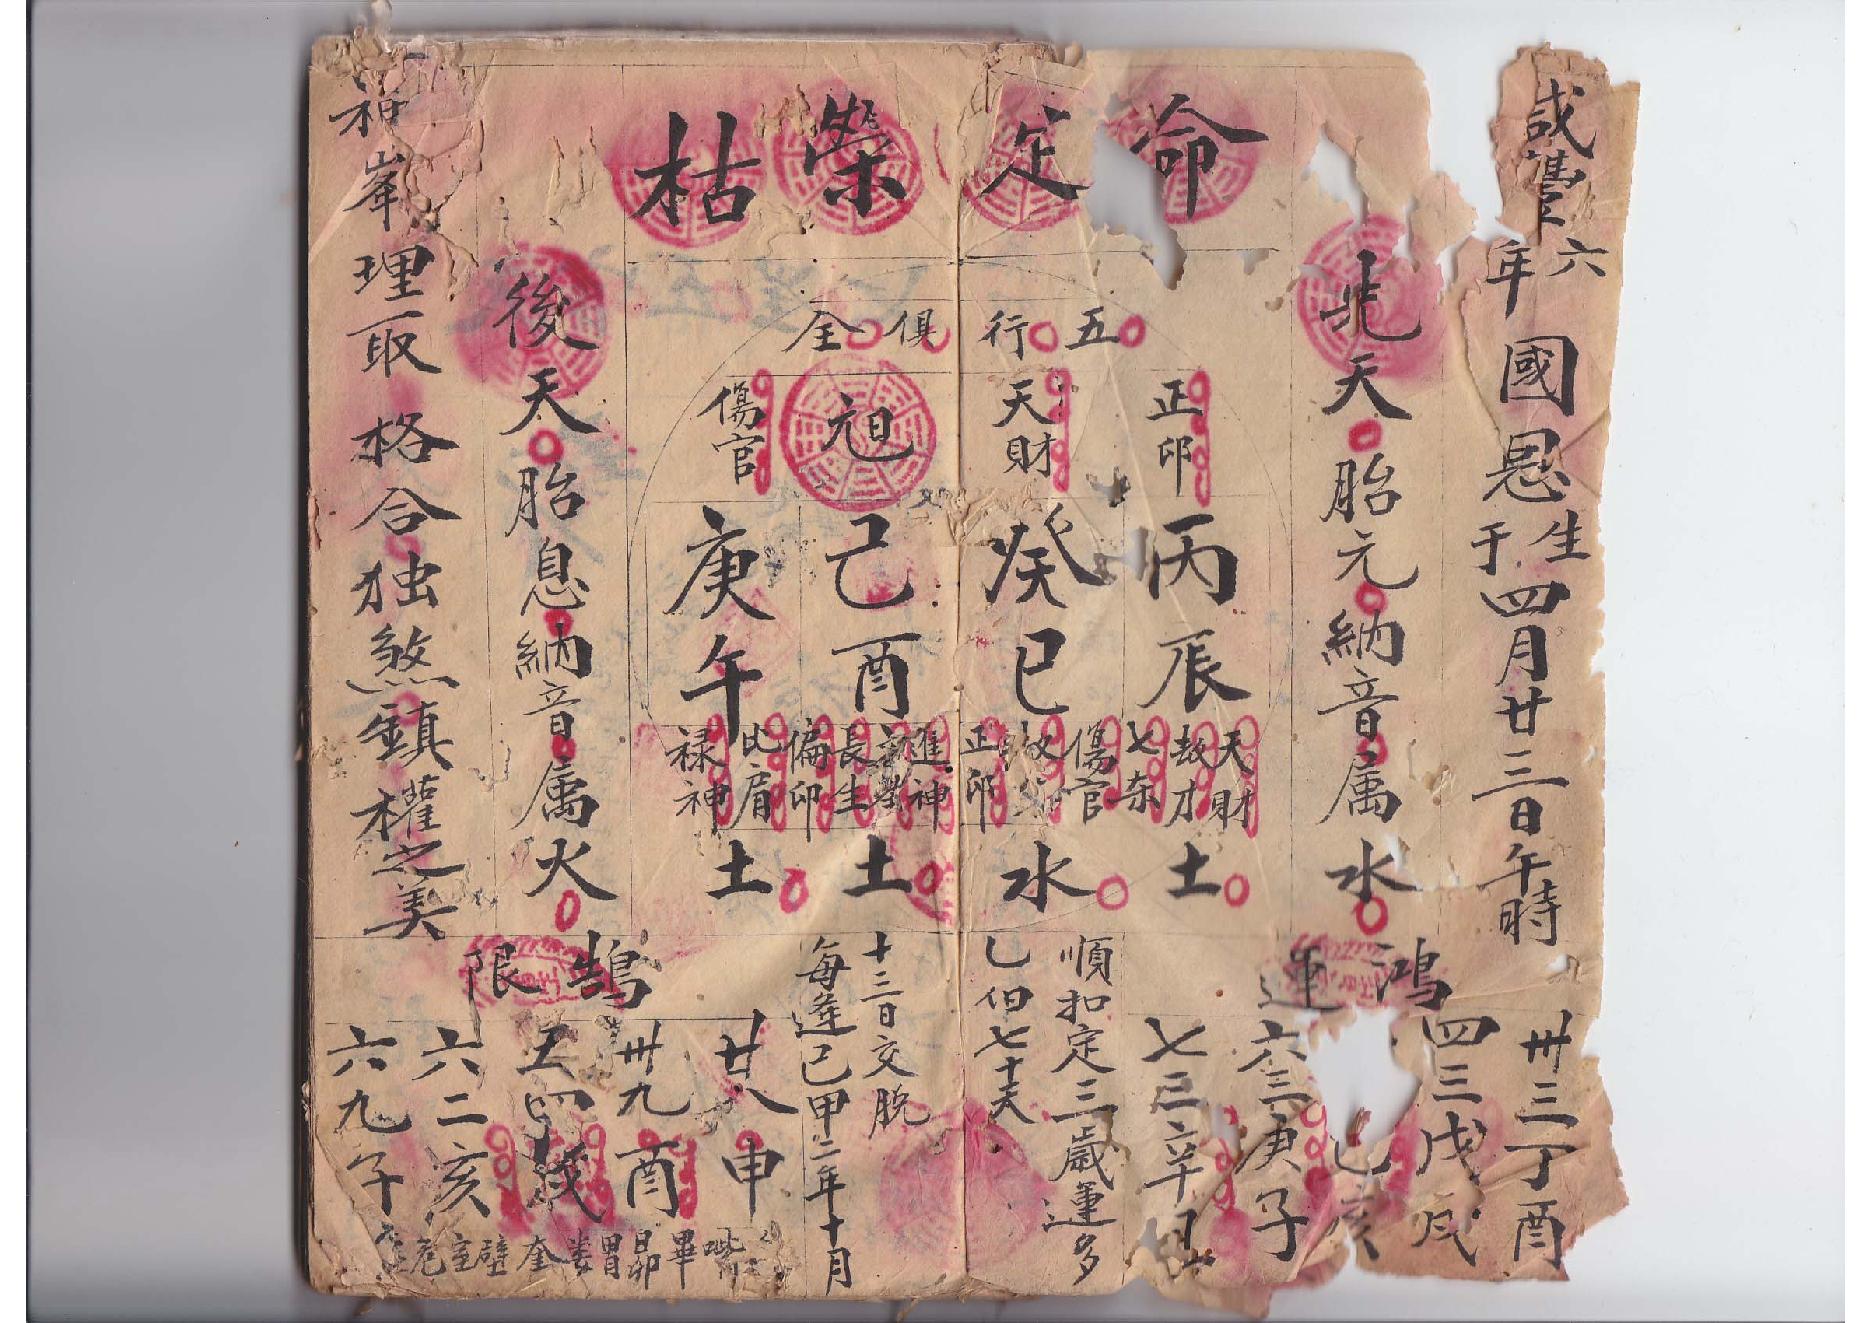 咸豐六年國恩生于四月廿三日午時
命定榮枯
先天胎元納音属水
五行俱全
正印
丙辰
天財
劫才
七杀
土
天財
癸巳
傷官
正印
水
元旦
己酉
進神
長生
土
傷官
庚午
偏印
比肩
禄神
土
後天胎息納音属火
和峯理取格合独煞鎮權之美
鴻運
卅三丁酉
四三戊戌
己亥
六三庚子
七三辛丑
順扣定三歲運多
七十六
十三日交脱
每逢己甲二年十月
鵠限
廿八申
卅九酉
五四戌
六二亥
六九子
畢昴胃婁奎壁室危